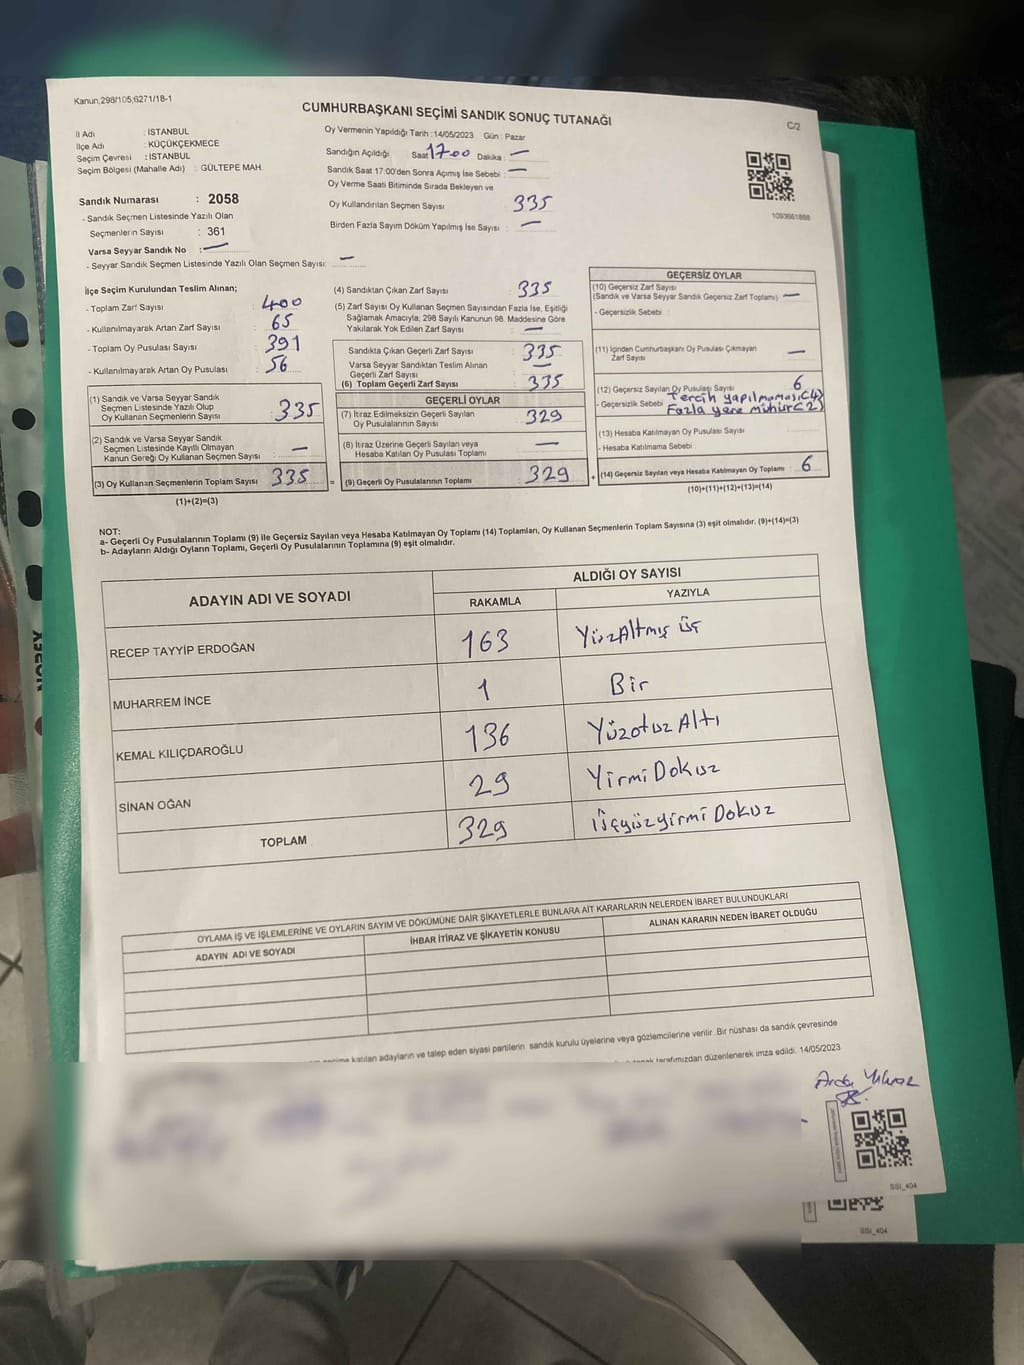 Kanun;298/105;6271/18-1
CUMHURBAŞKANI SEÇİMİ SANDIK SONUÇ TUTANAĞI
C/2
İl Adı : İSTANBUL
İlçe Adı : KÜÇÜKÇEKMECE
Seçim Çevresi : İSTANBUL
Seçim Bölgesi (Mahalle Adı) : GÜLTEPE MAH.
Sandık Numarası : 2058
- Sandık Seçmen Listesinde Yazılı Olan
Seçmenlerin Sayısı : 361
Varsa Seyyar Sandık No : —
- Seyyar Sandık Seçmen Listesinde Yazılı Olan Seçmen Sayısı: —
Oy Vermenin Yapıldığı Tarih : 14/05/2023 Gün : Pazar
Sandığın Açıldığı Saat 17:00 Dakika : —
Sandık Saat 17:00'den Sonra Açımış İse Sebebi : —
Oy Verme Saati Bitiminde Sırada Bekleyen ve
Oy Kullandırılan Seçmen Sayısı 335
Birden Fazla Sayım Döküm Yapılmış İse Sayısı : —
1093661888
İlçe Seçim Kurulundan Teslim Alınan;
- Toplam Zarf Sayısı : 400
- Kullanılmayarak Artan Zarf Sayısı : 65
- Toplam Oy Pusulası Sayısı : 391
- Kullanılmayarak Artan Oy Pusulası : 56
(1) Sandık ve Varsa Seyyar Sandık
Seçmen Listesinde Yazılı Olup
Oy Kullanan Seçmenlerin Sayısı : 335
(2) Sandık ve Varsa Seyyar Sandık
Seçmen Listesinde Kayıtlı Olmayan
Kanun Gereği Oy Kullanan Seçmen Sayısı : —
(3) Oy Kullanan Seçmenlerin Toplam Sayısı : 335
(1)+(2)=(3)
=
(4) Sandıktan Çıkan Zarf Sayısı : 335
(5) Zarf Sayısı Oy Kullanan Seçmen Sayısından Fazla İse, Eşitliği
Sağlamak Amacıyla; 298 Sayılı Kanunun 98. Maddesine Göre
Yakılarak Yok Edilen Zarf Sayısı : —
Sandıkta Çıkan Geçerli Zarf Sayısı : 335
Varsa Seyyar Sandıktan Teslim Alınan
Geçerli Zarf Sayısı : —
(6) Toplam Geçerli Zarf Sayısı : 335
GEÇERLİ OYLAR
(7) İtiraz Edilmeksizin Geçerli Sayılan
Oy Pusulalarının Sayısı : 329
(8) İtiraz Üzerine Geçerli Sayılan veya
Hesaba Katılan Oy Pusulası Toplamı : —
(9) Geçerli Oy Pusulalarının Toplamı : 329
+
GEÇERSİZ OYLAR
(10) Geçersiz Zarf Sayısı
(Sandık ve Varsa Seyyar Sandık Geçersiz Zarf Toplamı) : —
- Geçersizlik Sebebi :
(11) İçinden Cumhurbaşkanı Oy Pusulası Çıkmayan
Zarf Sayısı : —
(12) Geçersiz Sayılan Oy Pusulası Sayısı : 6
- Geçersizlik Sebebi : Tercih yapılmaması(4)
Fazla yere mühür(2)
(13) Hesaba Katılmayan Oy Pusulası Sayısı :
- Hesaba Katılmama Sebebi :
(14) Geçersiz Sayılan veya Hesaba Katılmayan Oy Toplamı : 6
(10)+(11)+(12)+(13)=(14)
NOT:
a- Geçerli Oy Pusulalarının Toplamı (9) ile Geçersiz Sayılan veya Hesaba Katılmayan Oy Toplamı (14) Toplamları, Oy Kullanan Seçmenlerin Toplam Sayısına (3) eşit olmalıdır. (9)+(14)=(3)
b- Adayların Aldığı Oyların Toplamı, Geçerli Oy Pusulalarının Toplamına (9) eşit olmalıdır.
ADAYIN ADI VE SOYADI
ALDIĞI OY SAYISI
RAKAMLA YAZIYLA
RECEP TAYYİP ERDOĞAN 163 YüzAltmış üç
MUHARREM İNCE 1 Bir
KEMAL KILIÇDAROĞLU 136 Yüzotuz Altı
SİNAN OĞAN 29 Yirmi Dokuz
TOPLAM 329 üçyüzyirmi Dokuz
OYLAMA İŞ VE İŞLEMLERİNE VE OYLARIN SAYIM VE DÖKÜMÜNE DAİR ŞİKAYETLERLE BUNLARA AİT KARARLARIN NELERDEN İBARET BULUNDUKLARI
ADAYIN ADI VE SOYADI İHBAR İTİRAZ VE ŞİKAYETİN KONUSU ALINAN KARARIN NEDEN İBARET OLDUĞU
katılan adayların ve talep eden siyasi partilerin sandık kurulu üyelerine veya gözlemcilerine verilir. Bir nüshası da sandık çevresinde
tarafımızdan düzenlenerek imza edildi. 14/05/2023
Arda Yılmaz
SSI_404
SSI_404